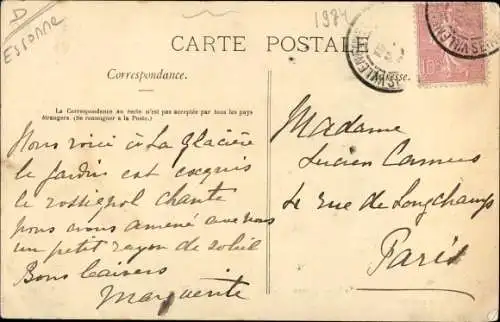 D
Essonne
1924
CARTE POSTALE
Correspondance.
Adresse.
La Correspondance au recto n'est pas acceptée par tous les pays
étrangers (Se renseigner à la Poste.)
Nous voici à La Glacière
le jardin est exquis
le rossignol chante
nous avons amené avec nous
un petit rayon de soleil
Bons baisers
Marguerite
Madame
Lucien Camus
rue de Longchamps
Paris
10